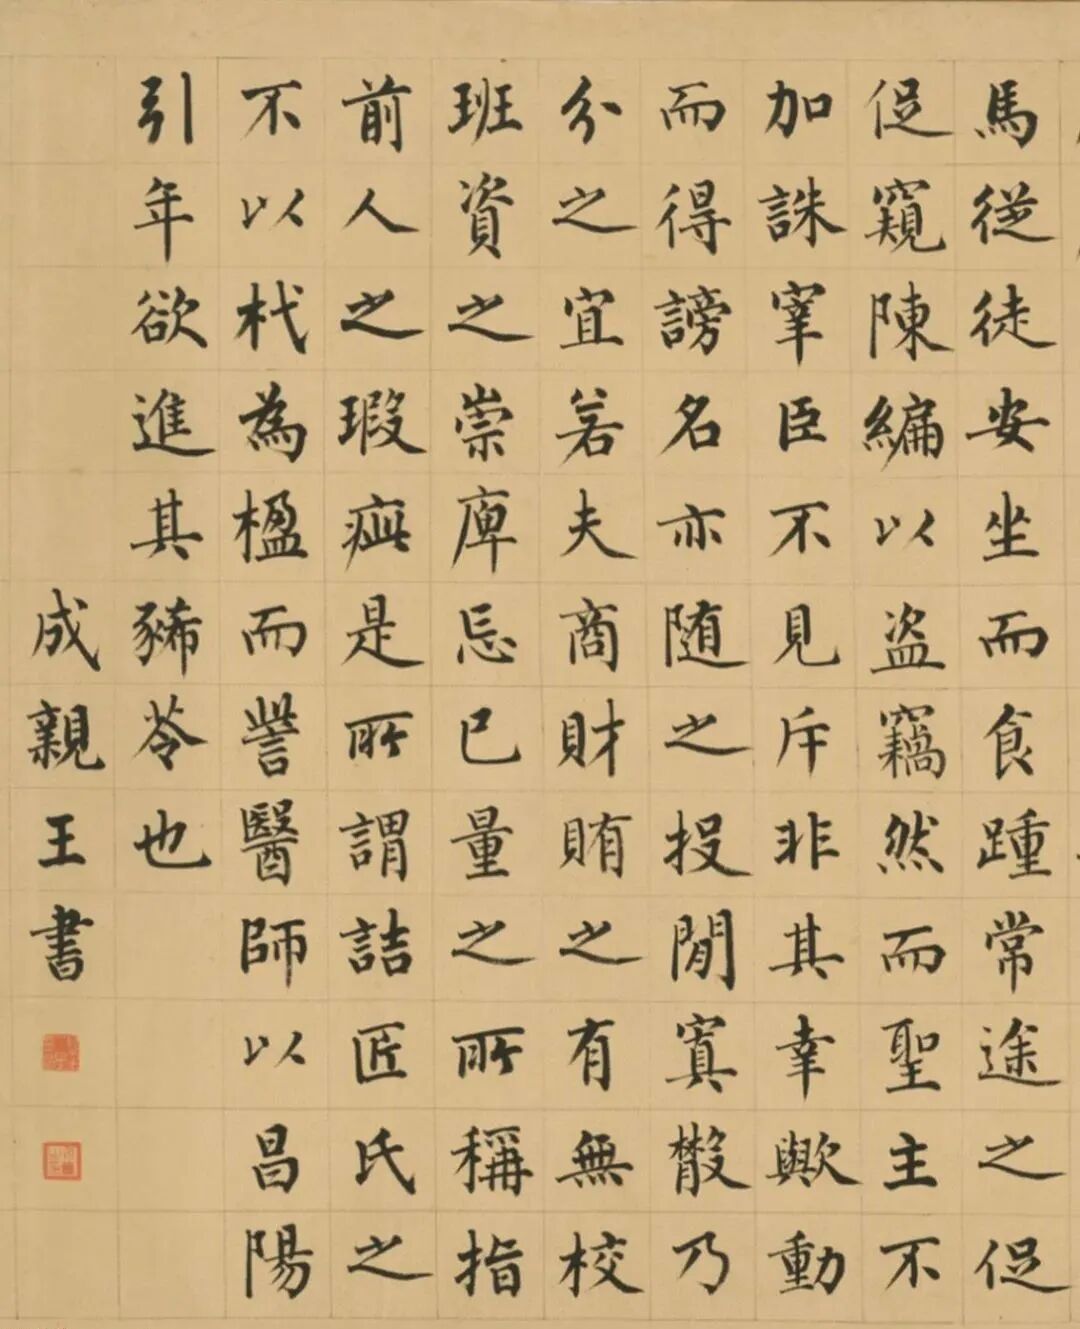 馬從徒安坐而食踵常途之促
促窺陳編以盜竊然而聖主不
加誅宰臣不見斥非其幸歟動
而得謗名亦随之投閒寘散乃
分之宜若夫商財賄之有無校
班資之崇庳忘己量之所稱指
前人之瑕疵是所謂詰匠氏之
不以杙為楹而訾醫師以昌陽
引年欲進其豨苓也
成親王書